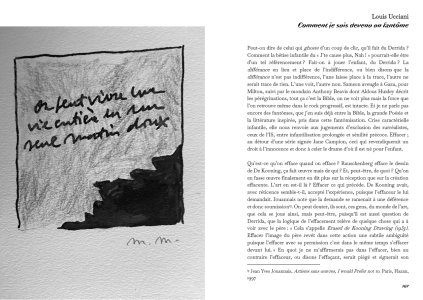 Louis Ucciani
Comment je suis devenu un fantôme
on peut vivre une
vie entière en un
seul mot doux
m. m.
Peut-on dire de celui qui glisse d'un coup de chic, qu'il fait du Derrida ?
Comment la bêtise infantile du « J'te cause plus, Nah ! » pourrait-elle être
d'un tel référencement ? Fait-on à jouer l'enfant, du Derrida ? La
différance en lieu et place de l'indifférence, ou bien disons que la
différance n'est pas indifférence, l'une laisse place à la trace, l'autre ne
serait trace de rien. L'une voit, l'autre non. Samson aveugle à Gaza, pour
Milton, suivi par le mondain Anthony Beavis dont Aldous Huxley décrit
les pérégrinations, tout ça c'est la Bible, on ne voit plus mais la force que
l'on retrouve même dans le rock progressif, est intacte. Et je ne parle pas
encore des fantômes, que j'en suis déjà entre la Bible, la grande Poésie et
la littérature inspirée, pris dans cette fantomisation. Crise caractérielle
infantile, elle nous renvoie aux jugements d'exclusion des surréalistes,
ceux de l'IS, entre infantilisation prolongée et sénilité précoce. Effacer ;
au détour d'une série signée Jane Campion, ceci qui revendiquerait un
droit à l'innocence et donc à celer le drame d'où il est né pour l'enfant.
Qu'est-ce qu'on efface quand on efface ? Rauschenberg efface le dessin
de De Kooning, ça fait œuvre mais de qui ? Et, peut-être, de quoi ? Qu'on
en fasse œuvre finalement en dit plus sur la réception que sur la création
effaçante. L'art en est-il là ? Effacer ce qui précède. De Kooning avait,
avec réticence semble-t-il, accepté l'expérience, puisque l'effaceur le lui
demandait. Jouannais note que la demande se ramenait à une déférence
et donc soumission⁹. On peut douter, ils sont, ces gens, du monde de l'art,
que cela se joue ainsi, mais peut-être, puisqu'il est aussi question de
Derrida, que la logique de l'effacement relève de quelque chose qui a à
voir avec le père : « Cela s'appelle Erased de Kooning Drawing (1953).
Effacer l'image du père revêt dans cette action une subtile ambiguïté
puisque l'effacer avec sa permission c'est dans le même temps s'effacer
devant lui. » En quoi je ne m'affirmerais pas dans l'effacer, bien au
contraire l'effaceur, ou disons l'effaçant, serait piégé et signerait son
⁹ Jean Yves Jouannais, Artistes sans œuvres, I would Prefer not to, Paris, Hazan,
1997